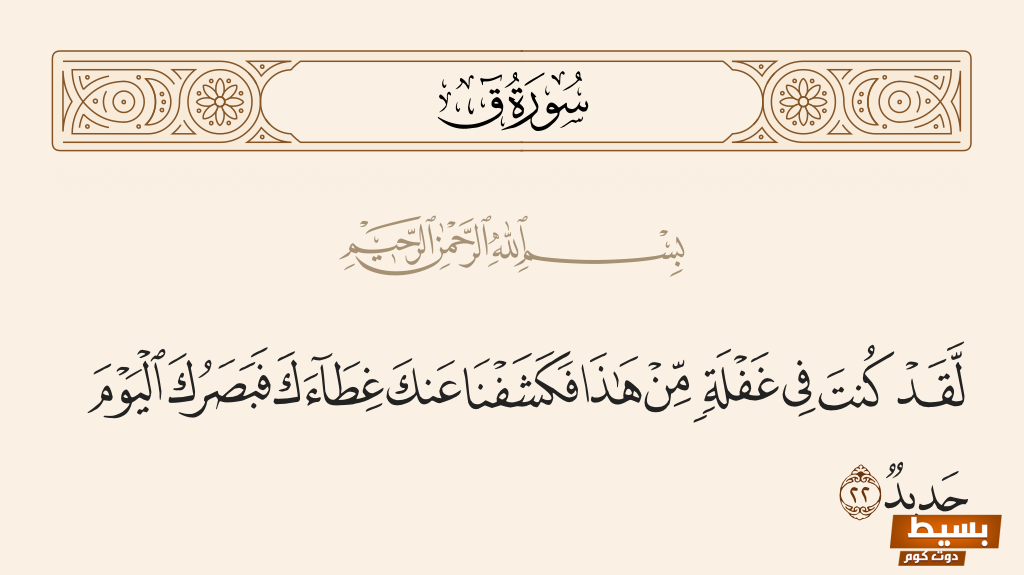 سُورَةُ قٓ
بِسْمِ ٱللَّهِ ٱلرَّحْمَٰنِ ٱلرَّحِيمِ
لَّقَدْ كُنتَ فِى غَفْلَةٍ مِّنْ هَٰذَا فَكَشَفْنَا عَنكَ غِطَآءَكَ فَبَصَرُكَ ٱلْيَوْمَ
حَدِيدٌ ٢٢
بسيط
دوت كوم